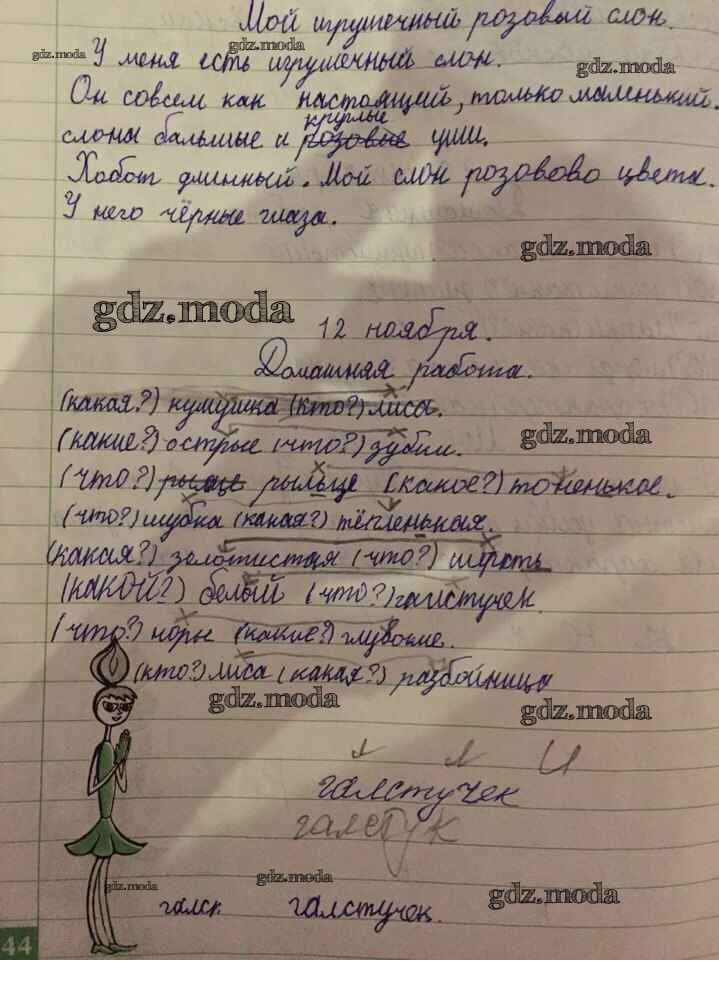 Мой игрушечный розовый слон.
У меня есть игрушечный слон.
Он совсем как настоящий, только маленький.
круглые
слона бальшые и розовые уши.
Хобот длинный. Мой слон розовово цвета.
У него чёрные глаза.
12 ноября.
Домашняя работа.
(какая?) кумушка (кто?) лиса.
(какие?) острые (что?) зубки.
(что?) рыльце (какое?) тоненькое.
(что?) шубка (какая?) тёпленькая.
(какая?) золотистая (что?) шерсть
(КАКОЙ?) белый (что?) галстучек.
(что?) норы (какие?) глубокие.
(кто?) лиса (какая?) разбойница
галстучек
галстук
галск галстучек.
44
gdz.moda
gdz.moda
gdz.moda
gdz.moda
gdz.moda
gdz.moda
gdz.moda
gdz.moda
gdz.moda
gdz.moda
gdz.moda
gdz.moda